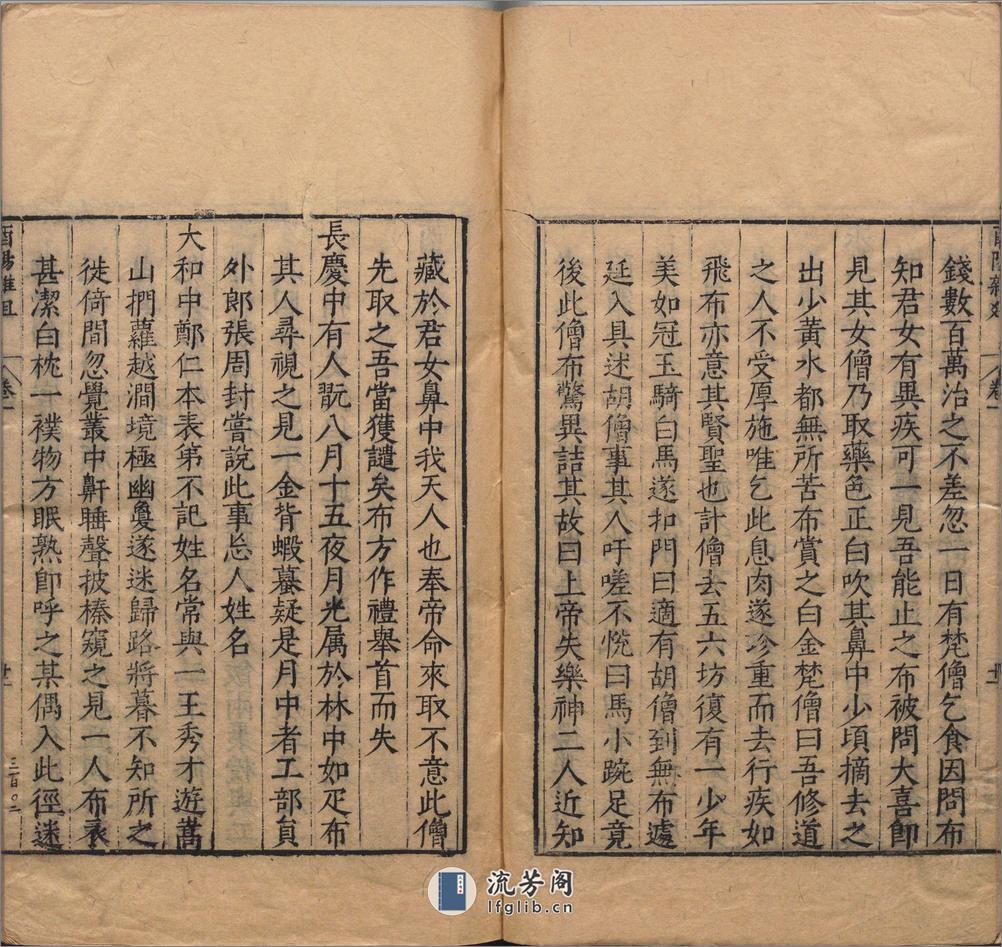 錢數百萬治之不差忽一日有梵僧乞食因問布
知君女有異疾可一見吾能止之布被問大喜即
見其女僧乃取藥色正白吹其鼻中少頃摘去之
出少黃水都無所苦布賞之白金梵僧曰吾修道
之人不受厚施唯乞此息肉遂珍重而去行疾如
飛布亦意其賢聖也計僧去五六坊復有一少年
美如冠玉騎白馬遂扣門曰適有胡僧到無布遽
延入具迷胡僧事其人吁嗟不悅曰馬小踠足竟
後此僧布驚異詰其故曰上帝失樂神二人近知
藏於君女鼻中我天人也奉帝命來取不意此僧
先取之吾當獲譴矣布方作禮舉首而失
長慶中有人翫八月十五夜月光属於林中如疋布
其人尋視之見一金背蝦蟇疑是月中者工部員
外郎張周封嘗說此事忘人姓名
大和中鄭仁本表弟不記姓名常與一王秀才遊嵩
山捫蘿越澗境極幽敻遂迷歸路將暮不知所之
徙倚間忽覺叢中鼾睡聲披榛窺之見一人布衣
甚潔白枕一襆物方眠熟即呼之某偶入此徑迷
酉陽雜俎
卷一
三百〇二
流芳阁
lfglib.cn